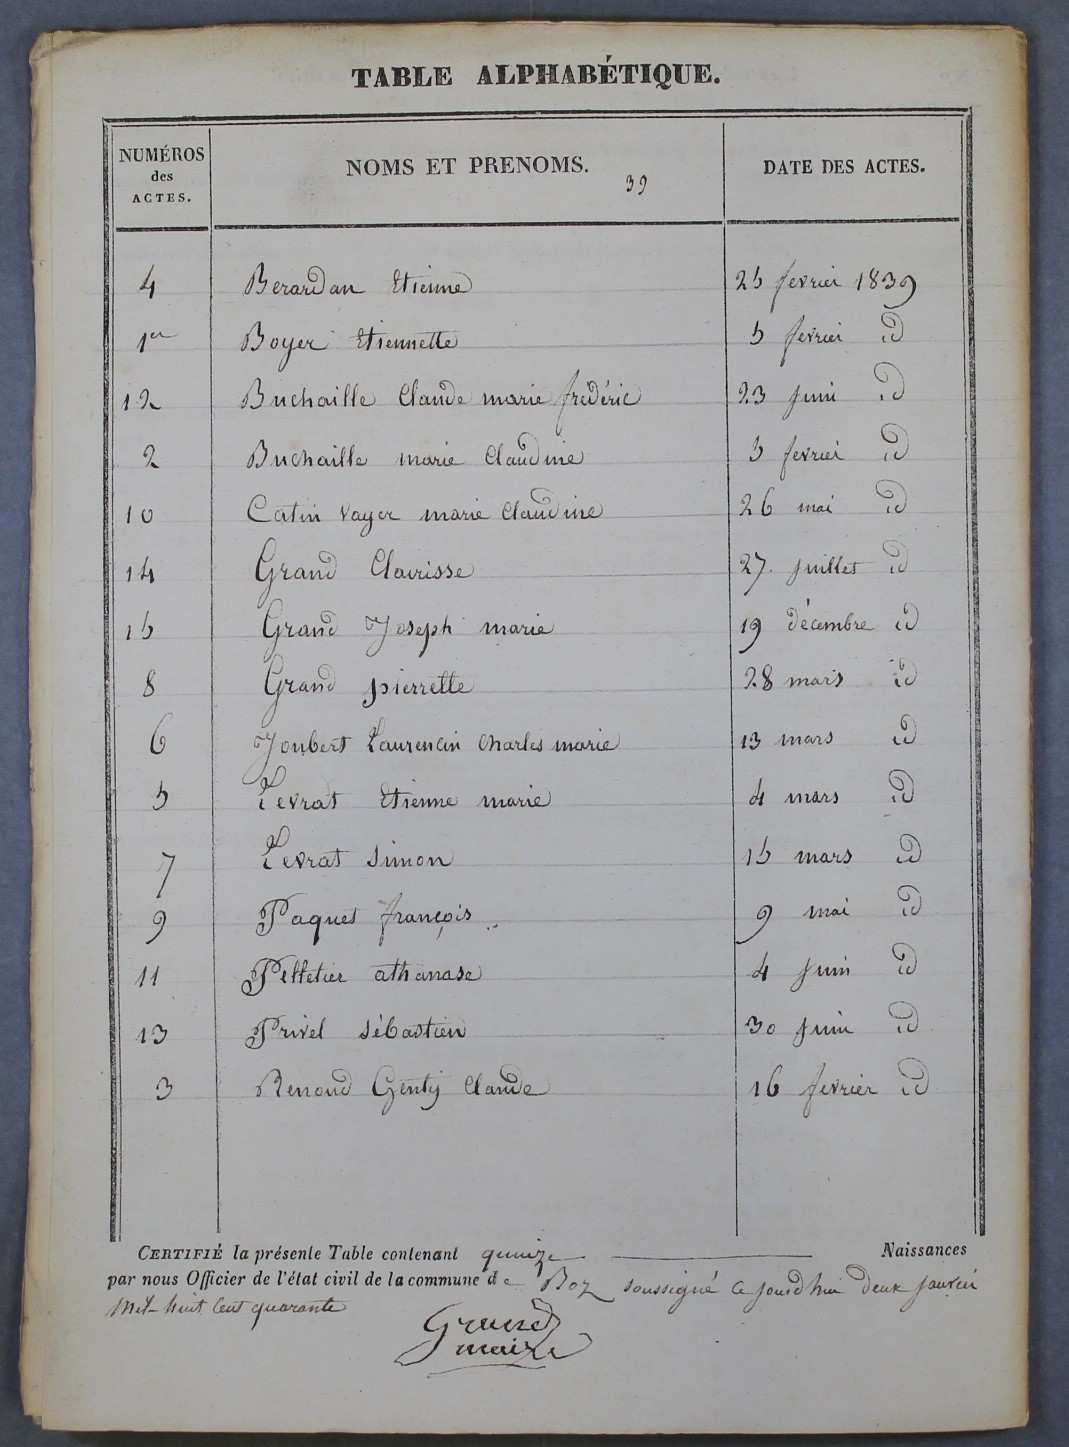 TABLE ALPHABÉTIQUE.
NUMÉROS des ACTES. NOMS ET PRENOMS. 39 DATE DES ACTES.
4 Berardan Etienne 25 fevrier 1839
1er Boyer Etiennette 5 fevrier id
12 Buchaille Claude marie frédéric 23 juin id
2 Buchaille marie Claudine 5 fevrier id
10 Catin vayer marie Claudine 26 mai id
14 Grand Clairisse 27 juillet id
15 Grand Joseph marie 19 décembre id
8 Grand pierrette 28 mars id
6 Joubert Laurencin Charles marie 13 mars id
5 Levrat Etienne marie 4 mars id
7 Levrat simon 15 mars id
9 Paquet françois 9 mai id
11 Pelletier athanase 4 juin id
13 Privel sébastien 30 juin id
3 Renoud Genty Claude 16 fevrier id
CERTIFIÉ la présente Table contenant quinze Naissances
par nous Officier de l'état civil de la commune de Boz soussigné ce jourd'hui deux janvier
Mil huit cent quarante
Grand
maire